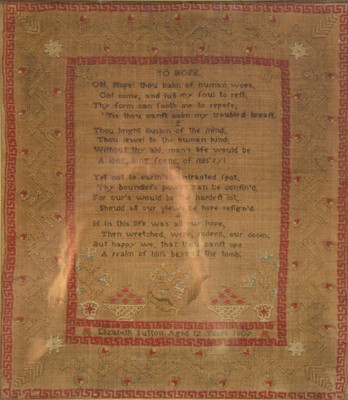 TO HOPE.
OH, Hope! thou balm of human woes,
Oh! come, and lull my soul to rest,
Thy form can sooth me to repose,
'Tis thou canst calm my troubled breast,
Thou bright illusion of the mind,
Thou jewel to the human kind,
Without thy aid, man's life would be
A long, long scene, of mis'ry!
Yet not to earth's contracted spot,
Thy boundless power can be confin'd,
For our's would be the hardest lot,
Should all our views be here resign'd
If in this life was all our hope,
Then wretched, were, indeed, our doom,
But happy we, that thou canst ope
A realm of bliss beyond the tomb.
Elizabeth Sutton Aged 12 Years